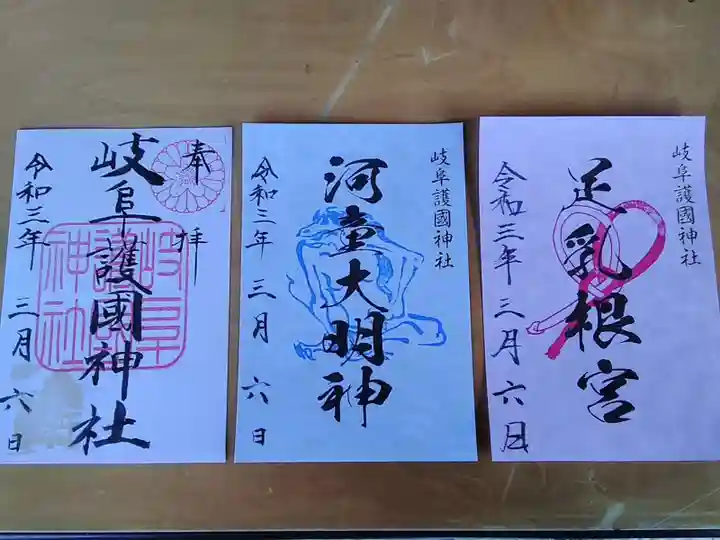 奉拝
岐阜護國神社
岐阜護國神社
令和三年 三月 六日
岐阜護國神社
河童大明神
令和三年 三月 六日
岐阜護國神社
足乳根宮
令和三年 三月 六日